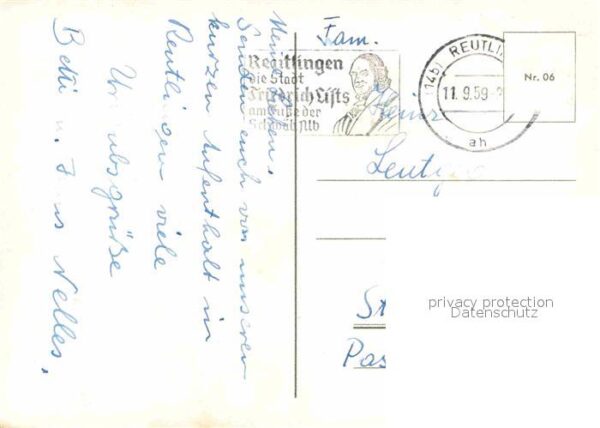 Senden euch von unserem
kurzen Aufenthalt in
Reutlingen viele
Urlaubsgrüße
Betti u. Nelles.
Fam.
Heinz
St
Pas
Reutlingen
die Stadt
Friedrich Lists
am Fuße der
Schwäb. Alb
(14b) REUTLIN
11.9.59-
ah
Nr. 06
privacy protection
Datenschutz